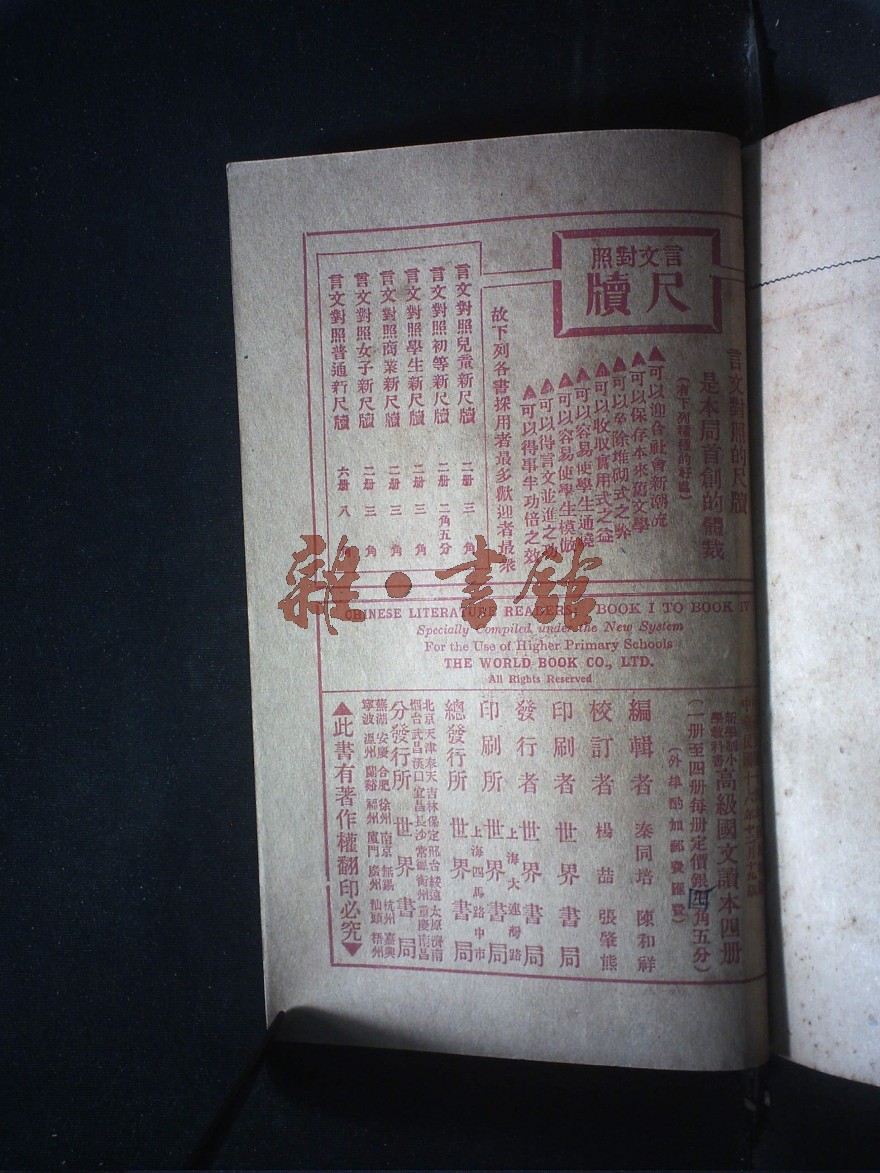 言文對照
尺牘
言文對照的尺牘
是本局首創的體裁
(有下列種種的好處)
▲可以迎合社會新潮流
▲可以保存本來舊文學
▲可以革除堆砌式之弊
▲可以收取實用式之益
▲可以容易使學生通曉
▲可以容易使學生模倣
▲可以得言文並進之功
▲可以得事半功倍之效
故下列各書採用者最多歡迎者最衆
言文對照兒童新尺牘 二册 三角
言文對照初等新尺牘 二册 二角五分
言文對照學生新尺牘 二册 三角
言文對照商業新尺牘 二册 三角
言文對照女子新尺牘 二册 三角
言文對照普通新尺牘 六册 八角
雜·書館
CHINESE LITERATURE READERS: BOOK I TO BOOK IV
Specially Compiled, under the New System
For the Use of Higher Primary Schools
THE WORLD BOOK CO., LTD.
All Rights Reserved
新學制小學教科書 高級國文讀本四册
(一册至四册每册定價銀 角五分)
(外埠酌加郵費匯費)
編輯者 秦同培 陳和祥
校訂者 楊喆 張肇熊
印刷者 世界書局
發行者 上海大連灣路 世界書局
印刷所 世界書局
總發行所 上海四馬路中市 世界書局
北京 天津 奉天 吉林 保定 邢台 綏遠 太原 濟南
烟台 武昌 漢口 宜昌 長沙 常德 衡州 重慶 南昌
分發行所 世界書局
蕪湖 安慶 合肥 徐州 南京 無錫 杭州 嘉興
寧波 溫州 蘭谿 福州 廈門 廣州 汕頭 梧州
▲此書有著作權翻印必究▼